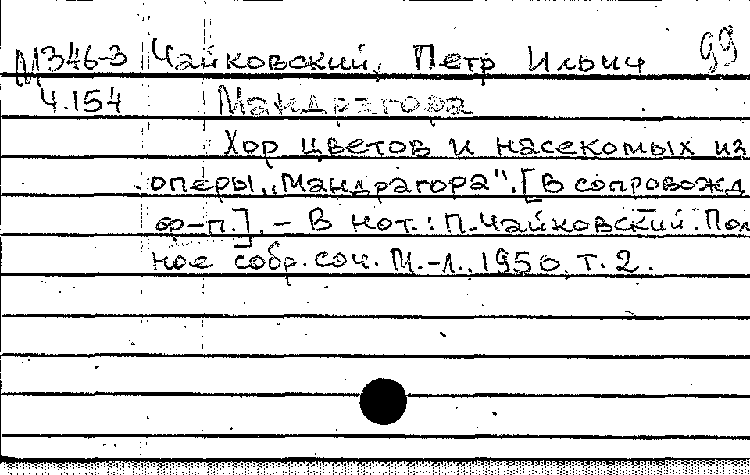 М346-3 Чайковский, Петр Ильич 99
Ч.154 Мандрагора
Хор цветов и насекомых из
оперы „Мандрагора". [В сопровожд
ф-п.]. - В нот.: П. Чайковский. Пол
ное собр. соч. М.-Л., 1950, т. 2.